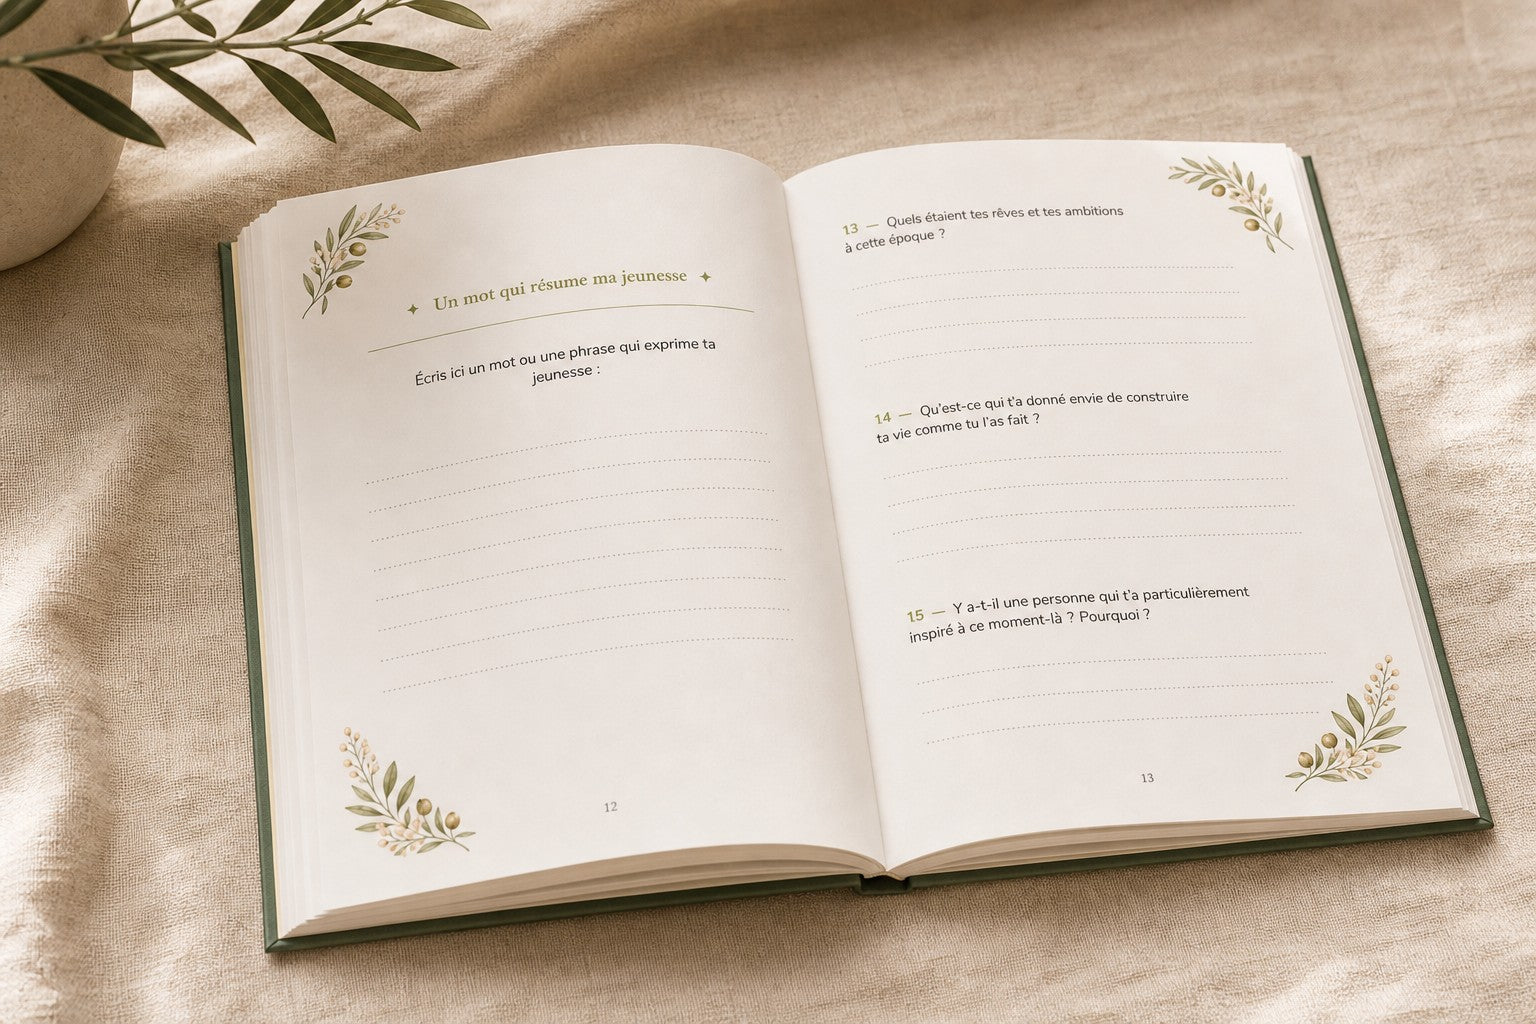 ✦ Un mot qui résume ma jeunesse ✦
Écris ici un mot ou une phrase qui exprime ta
jeunesse :
12
13 — Quels étaient tes rêves et tes ambitions
à cette époque ?
14 — Qu'est-ce qui t'a donné envie de construire
ta vie comme tu l'as fait ?
15 — Y a-t-il une personne qui t'a particulièrement
inspiré à ce moment-là ? Pourquoi ?
13